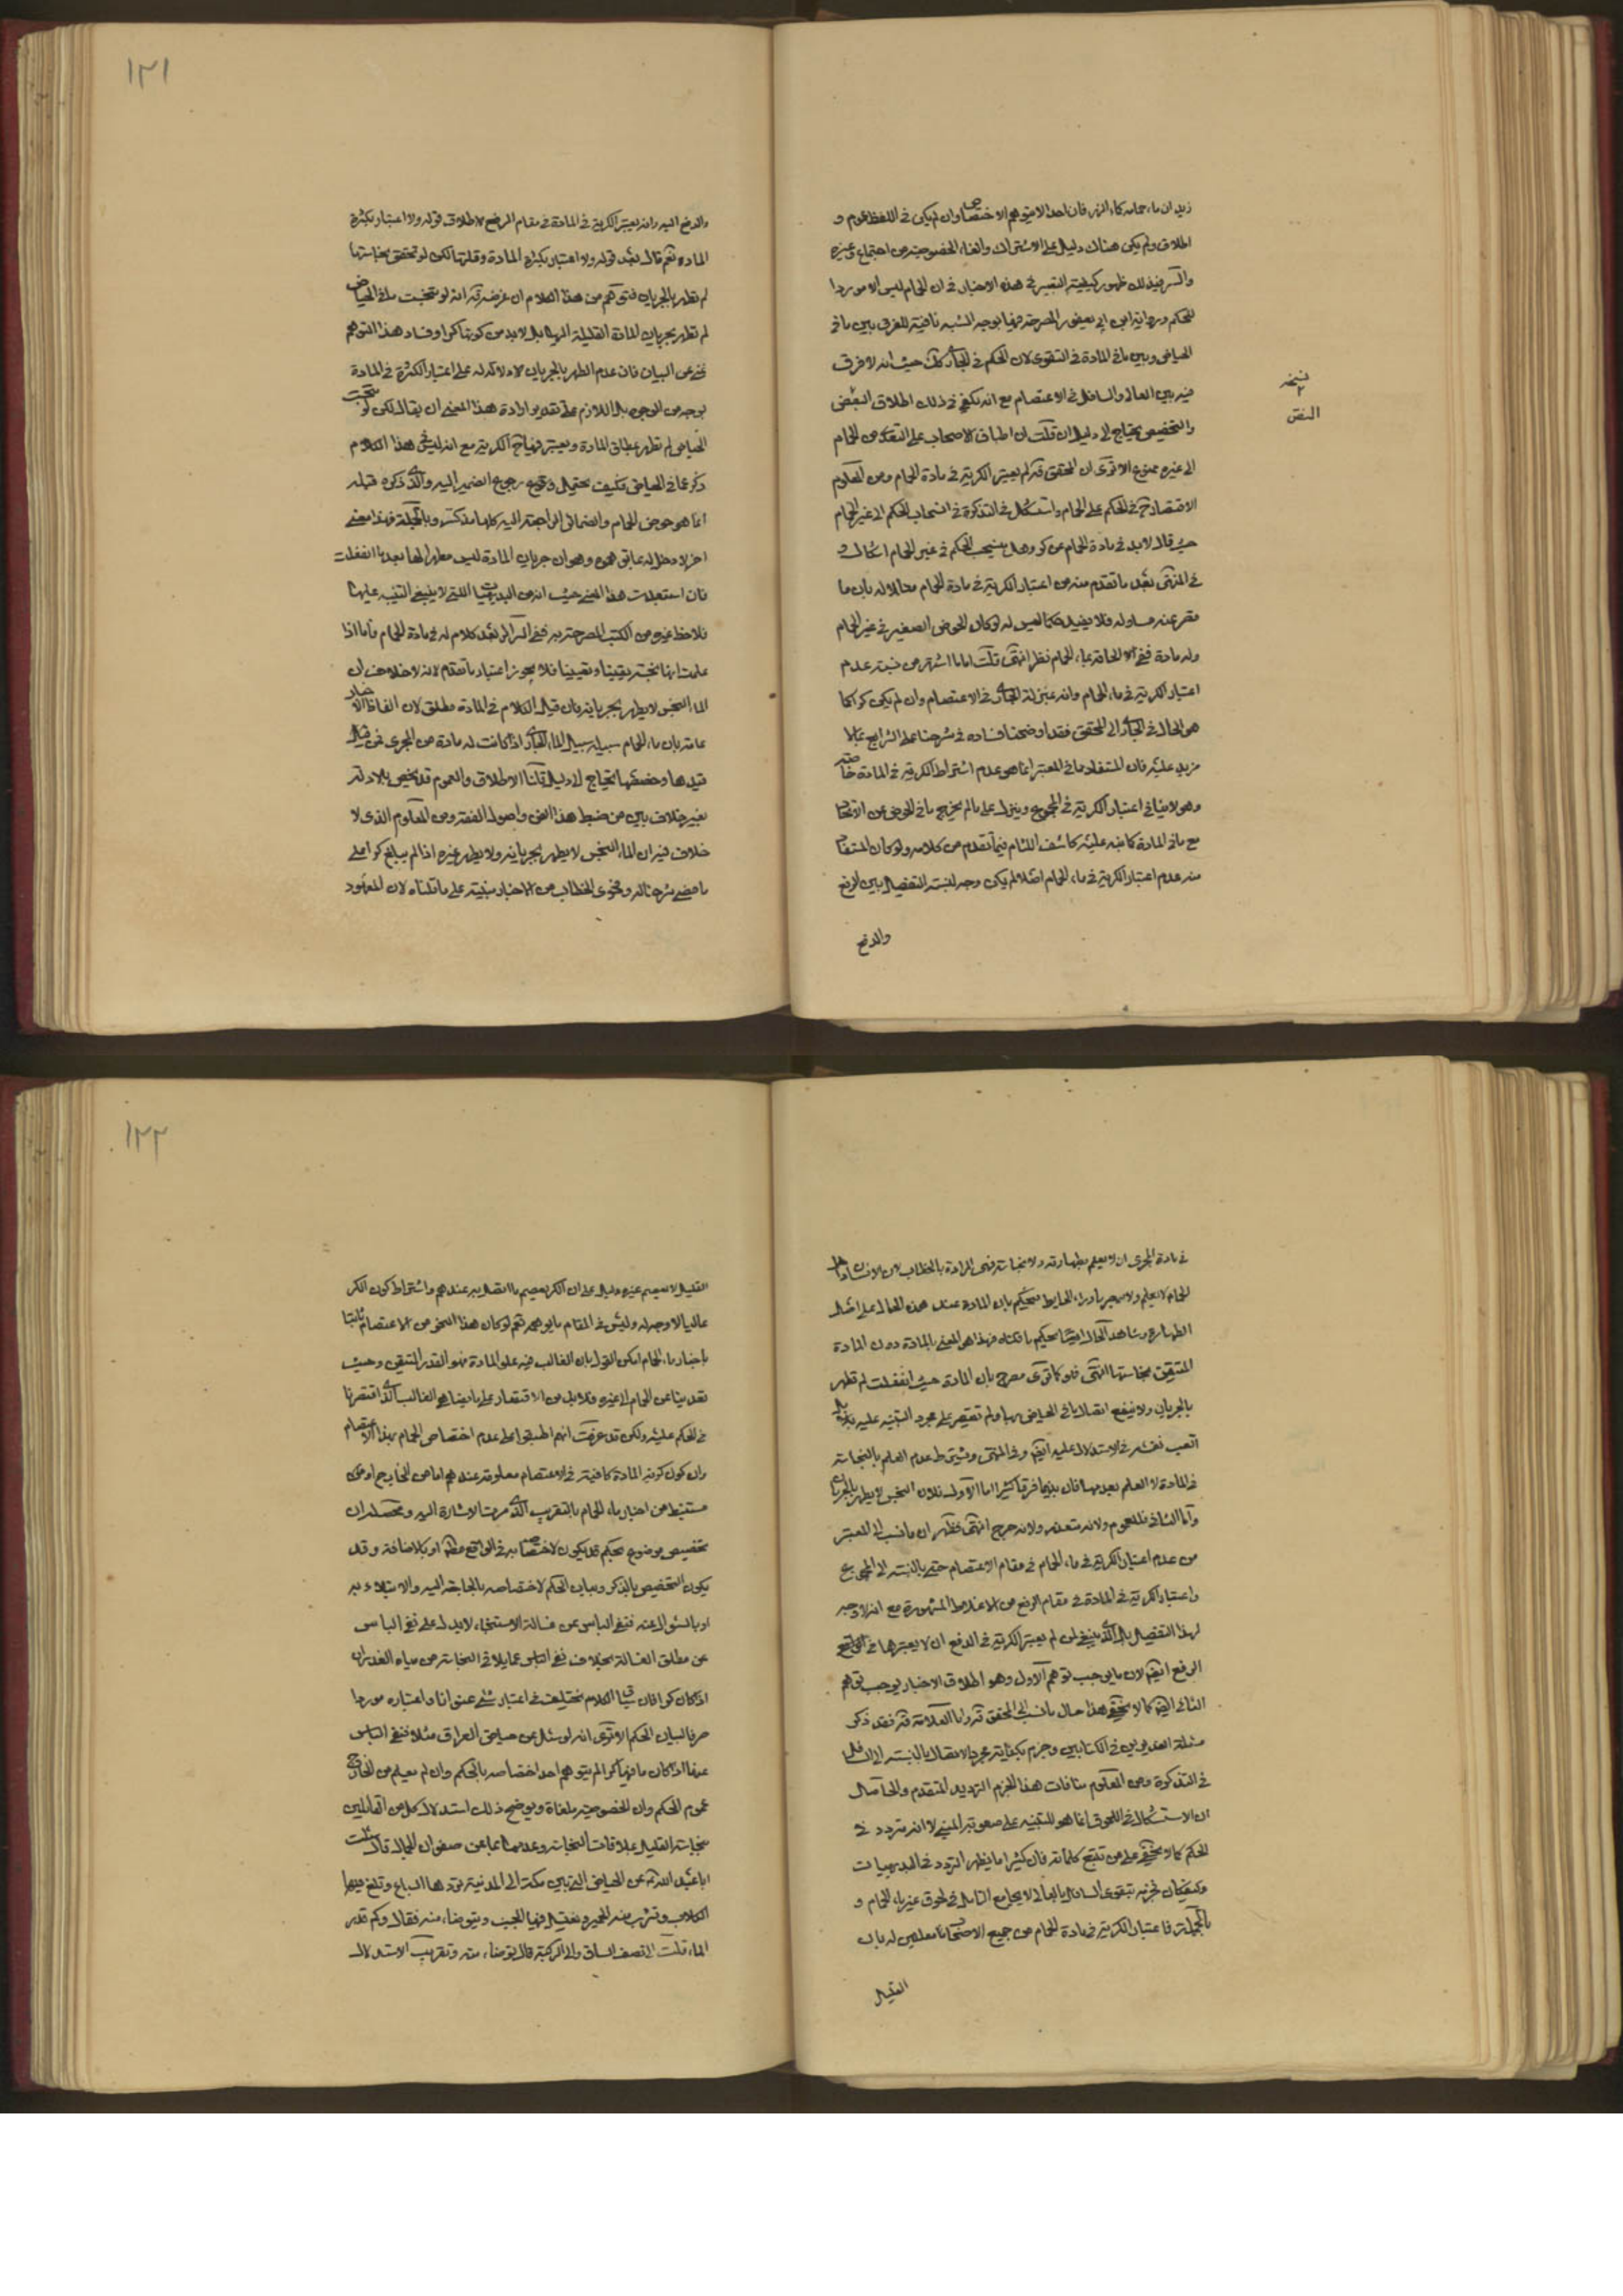 زيد ان ماء حمامه كماء النهر فان احدا لا يتوهم الاختصاص وان لم يكن في اللفظ عموم و
اطلاق ولم يكن هناك دليل على الاشتراك والغاء الخصوصية من اجماع وغيره
والسر في ذلك ظهور كيفية التعبير في هذه الاخبار في ان الحمام ليس الا موردا
للحكم ورواية ابن ابي يعفور المصرحة فيها بوجه الشبه نافية للفرق بين ما في
الحياض وبين ما في المادة في التقوى لان الحكم في الجاري كك حيث انه لا فرق
نسخه
٢
النص
فيه بين العالي والسافل في الاعتصام مع انه يكفي في ذلك اطلاق البعض
والتخصيص يحتاج الى دليل ان قلت ان اطباق الاصحاب على التعدي من الحمام
الى غيره ممنوع الا ترى ان المحقق قده لم يعتبر الكرية في مادة الحمام ومن المعلوم
الاقتصار ح في الحكم على الحمام واستشكل في التذكرة في انسحاب الحكم الى غير الحمام
حيث قال لا بد في مادة الحمام من كر وهل ينسحب الحكم في غير الحمام اشكال و
في المنتهى بعد ما تقدم منه من اعتبار الكرية في مادة الحمام
ولو كان الحوض الصغير في غير الحمام
وله مادة ففي الالحاقه بماء الحمام نظر انتهى قلت اما ما اشتهر من نسبة عدم
اعتبار الكرية في ماء الحمام وانه بمنزلة الجاري في الاعتصام وان لم يكن كرا كما
هو الحال في الجاري الى المحقق فقد اوضحنا فساده في شرحنا على الشرايع بما لا
مزيد عليه فان المستفاد ما في المعتبر انما هو عدم اشتراط الكرية في المادة خاصة
وهو لا ينافي اعتبار الكرية في المجموع وينزل على ما لم يخرج ما في الحوض عن الاتحاد
مع ما في المادة كما نبه عليه كاشف اللثام فيما تقدم من كلامه ولو كان المستفاد
منه عدم اعتبار الكرية في ماء الحمام اصلا لم يكن وجه لنسبة التفصيل بين الرفع
والدفع
١٢١
والدفع اليه وانه يعتبر الكرية في المادة في مقام الرفع لاطلاق قوله ولا اعتبار بكثرة
المادة نعم قال بعد قوله ولا اعتبار بكثرة المادة وقلتها لكن لو تحقق نجاستها
لم تطهر بالجريان فتوهم من هذا الكلام ان غرضه قده انه لو تنجست ما في الحياض
لم تطهر بجريان المادة القليلة اليها بل لا بد من كونها كرا وفساد هذا التوهم
غني عن البيان فان عدم الطهر بالجريان لا دلالة له على اعتبار الكثرة في المادة
بوجه من الوجوه بل اللازم على تقدير ارادة هذا المعنى ان يقال لكن لو تنجست
الحياض لم تطهر بمطلق المادة ويعتبر فيها ح الكرية مع انه ليس في هذا الكلام
ذكر عما في الحياض فكيف يحتمل رجوع الضمير اليه والذي ذكره قبله
انما هو حوض الحمام والضمائر الراجعة اليه كلها مذكرة وبالجملة فهذا معنى
اخر لا دخل له بما توهموه وهو ان جريان المادة ليس مطهرا لها بعد ما انفعلت
فان استبعدت هذا المعنى حيث انه من البديهيات التي لا ينبغي التنبيه عليها
فلاحظ غيره من الكتب المصرحة به ففي السرائر بعد كلام له في مادة الحمام فاما اذا
علمت انها نجسة يقينا وتعيينا فلا يجوز اعتبار ما تقدم لانه لا خلاف ان
الماء النجس لا يطهر بجريانه فان قيل الكلام في المادة مطلق لان الفاظ الاخبار
عامة بان ماء الحمام سبيله سبيل الماء الجاري اذا كانت له مادة من المجرى فمن
قيدها وخصصها يحتاج الى دليل قلنا الاطلاق والعموم قد يخص بالادلة
بغير خلاف بين من ضبط هذا الفن واصول الفقه ومن المعلوم الذي لا
خلاف فيه ان الماء النجس لا يطهر بجريانه ولا يطهر غيره اذا لم يبلغ كرا على
ما مضى شرحنا له وفحوى الخطاب من الاخبار منبئة على ما قلناه لان المعهود
في مادة المجرى ان لا يعلم بطهارته ولا نجاسته فهي المرادة بالخطاب لان الانسان داخل
الحمام لا يعلم ولا يبصر ما وراء الحايط فيحكم بان المادة عند هذه الحال على اصل
الطهارة ويشاهد الحال ايضا يحكم ما قلناه فهذا هو المعنى بالمادة دون المادة
المتيقن نجاستها انتهى فهو كما ترى مصرح بان المادة حيث انفعلت لم تطهر
بالجريان ولا ينفع اتصال ما في الحياض بها ولم تقتصر على مجرد التنبيه عليه بل
اتعب نفسه في الاستدلال عليه ايضا وفي المنتهى ويشترط عدم العلم بالنجاسة
في المادة لا العلم بعدمها فان بينهما فرقا كثيرا اما الاول فلان النجس لا يطهر بالجريان
واما الثاني فللعموم ولانه متعذر ولانه حرج انتهى فظهر ان ما نسب الى المعتبر
من عدم اعتبار الكرية في ماء الحمام في مقام الاعتصام حتى بالنسبة الى المجموع
واعتبار الكرية في المادة في مقام الرفع من الاغلاط المشهورة مع انه لا وجه
لهذا التفصيل بل الذي ينبغي لمن لم يعتبر الكرية في الدفع ان لا يعتبرها في
الرفع ايضا لان ما يوجب توهم الاول وهو اطلاق الاخبار يوجب توهم
الثاني ايضا كما لا يخفى هذا حال ما نسب الى المحقق قده واما العلامة قده فقد ذكر
مسئلة الغديرين في الكتابين وجزم بكفاية مجرد الاتصال بالنسبة الى السافل
في التذكرة ومن المعلوم منافات هذا الجزم الترديد المتقدم والحاصل
ان الاستشكال في اللحوق انما هو للتنبيه على صعوبة المبنى لا انه متردد في
الحكم كما لا يخفى على من تتبع كلماته فان كثيرا ما يظهر التردد في البديهيات
وكيف كان فجزمه بتقوى السافل بالعالي لا يجامع التامل في لحوق غير ماء الحمام و
بالجملة فاعتبار الكرية في مادة الحمام من جميع الاصحاب معللين له بان
القليل
١٢٢
القليل لا يعصم غيره دليل على ان الكر يعصم ما اتصل به عندهم واشتراط كون الكر
عاليا لا وجه له وليس في المقام ما يوهمه نعم لو كان هذا النحو من الاعتصام ثابتا
باخبار ماء الحمام امكن القول بان الغالب فيه علو المادة فهو القدر المتيقن وحيث
تعدينا عن الحمام الى غيره فلا بد من الاقتصار على ما يضاهي الغالب الذي اقتصرنا
في الحكم عليه ولكن قد عرفت انهم اطبقوا على عدم اختصاص الحمام بهذا الاعتصام
وان كون كرية المادة كافية في الاعتصام معلومة عندهم اما من الخارج او من
مستنبط من اخبار ماء الحمام بالتقريب الذي مرت الاشارة اليه ومحصله ان
تخصيص موضوع بحكم قد يكون لاختصاصه به في الواقع مطلقا او بالاضافة وقد
يكون التخصيص بالذكر وبيان الحكم لاختصاصه بالحاجة اليه والابتلاء به
او بالسؤال عنه فنفي الباس عن غسالة الاستنجاء لا يدل على نفي الباس
عن مطلق الغسالة بخلاف نفي الباس عما يلاقي النجاسة من مياه الغدران
اذا كان كرا فان سياق الكلام يختلف في اعتبار شئ عنوانا واعتباره موردا
صرفا لبيان الحكم الا ترى انه لو سئل عن حياض العراق مثلا فنفى الباس
عنها اذا كان ما فيها كرا لم يتوهم احد اختصاصه بالحكم وان لم يعلم من الخارج
عموم الحكم وان الخصوصية ملغاة ويوضح ذلك استدلال كل من القائلين
بنجاسة القليل بملاقات النجاسة وعدمها بما عن صفوان الجمال قال سئلت
ابا عبد الله ع عن الحياض التي بين مكة الى المدينة تردها السباع وتلغ فيها
الكلاب وتشرب منه الحمير ويغتسل فيها الجنب ويتوضا منه فقال وكم قدر
الماء قلت الى نصف الساق والى الركبة قال توضا منه وتقريب الاستدلال